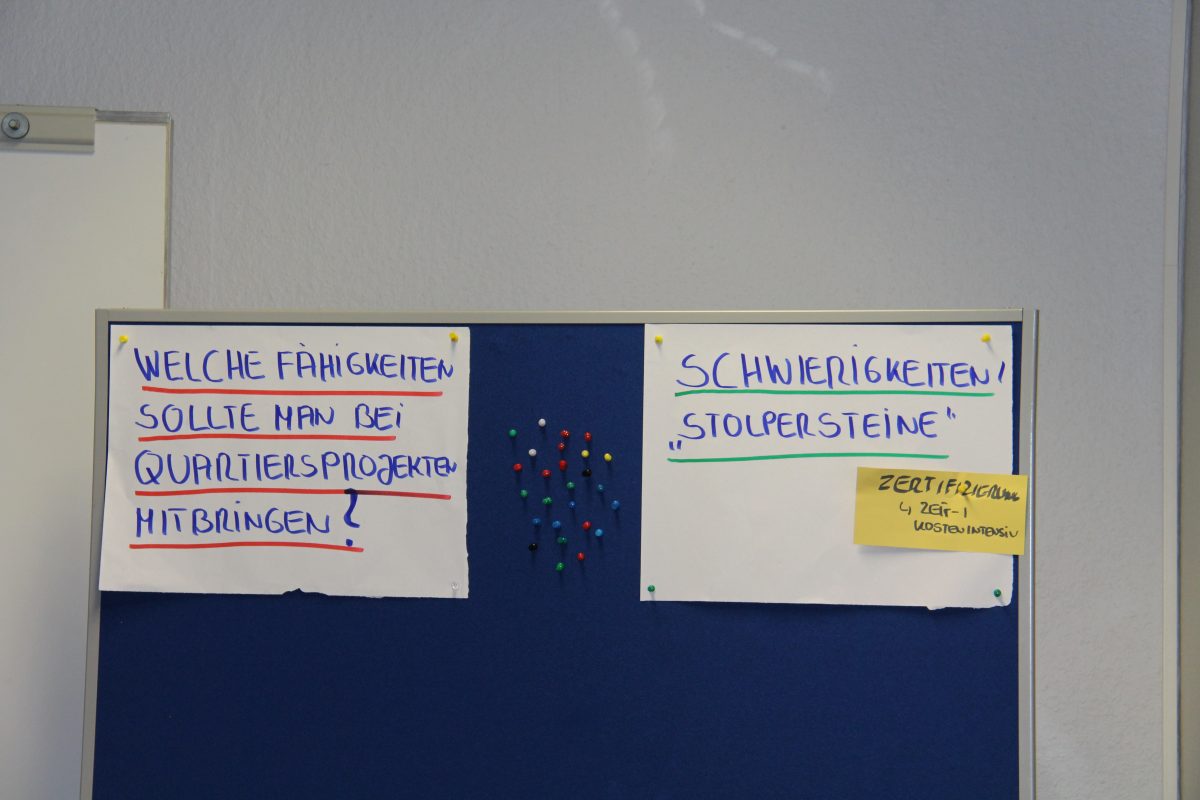 WELCHE FÄHIGKEITEN
SOLLTE MAN BEI
QUARTIERSPROJEKTEN
MITBRINGEN?
SCHWIERIGKEITEN/
„STOLPERSTEINE"
ZERTIFIZIERUNG
↳ ZEIT-/
KOSTENINTENSIV